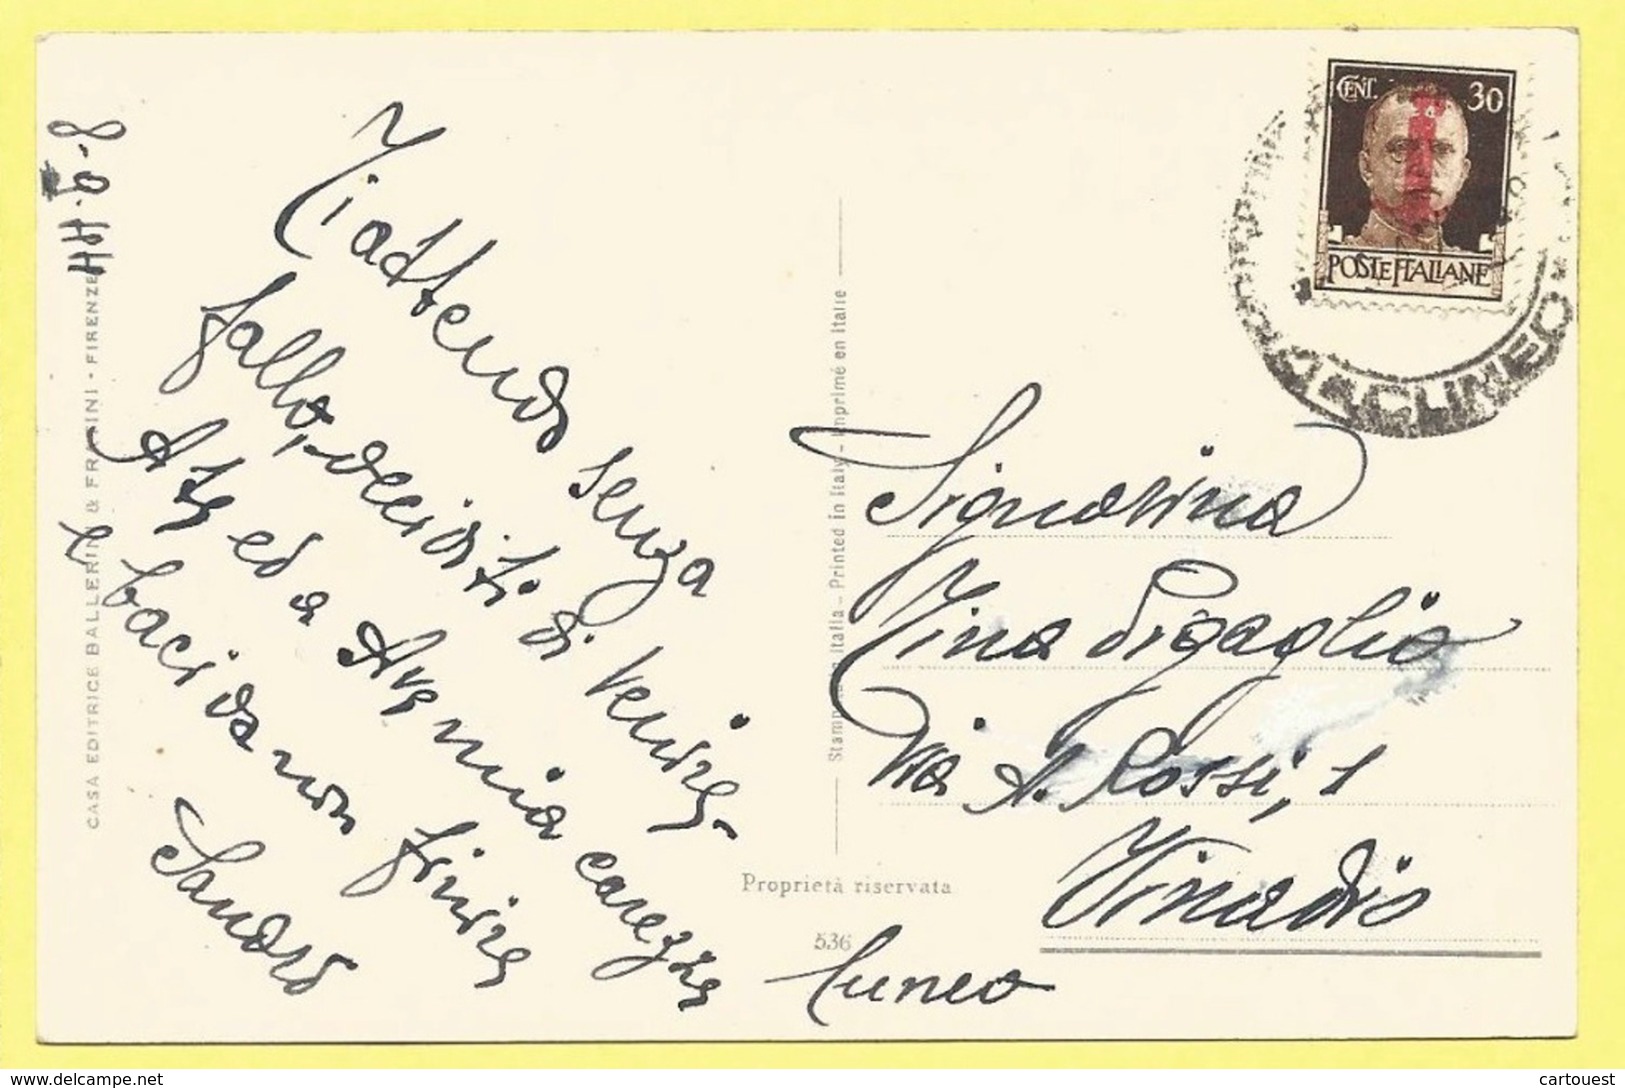 8-6-44
Ti attendo senza
fallo, deciditi di venire
A te ed a Ave mia carezze
e baci da non finire
Sandro
CASA EDITRICE BALLERINI & FRATINI - FIRENZE
Stampato in Italia - Printed in Italy - Imprimé en Italie
Proprietà riservata
536
CENT. 30
POSTE ITALIANE
CUNEO
Signorina
Tina Sigaglio
Via A. Rossi, 1
Vinadio
Cuneo
delcampe.net
cartouest